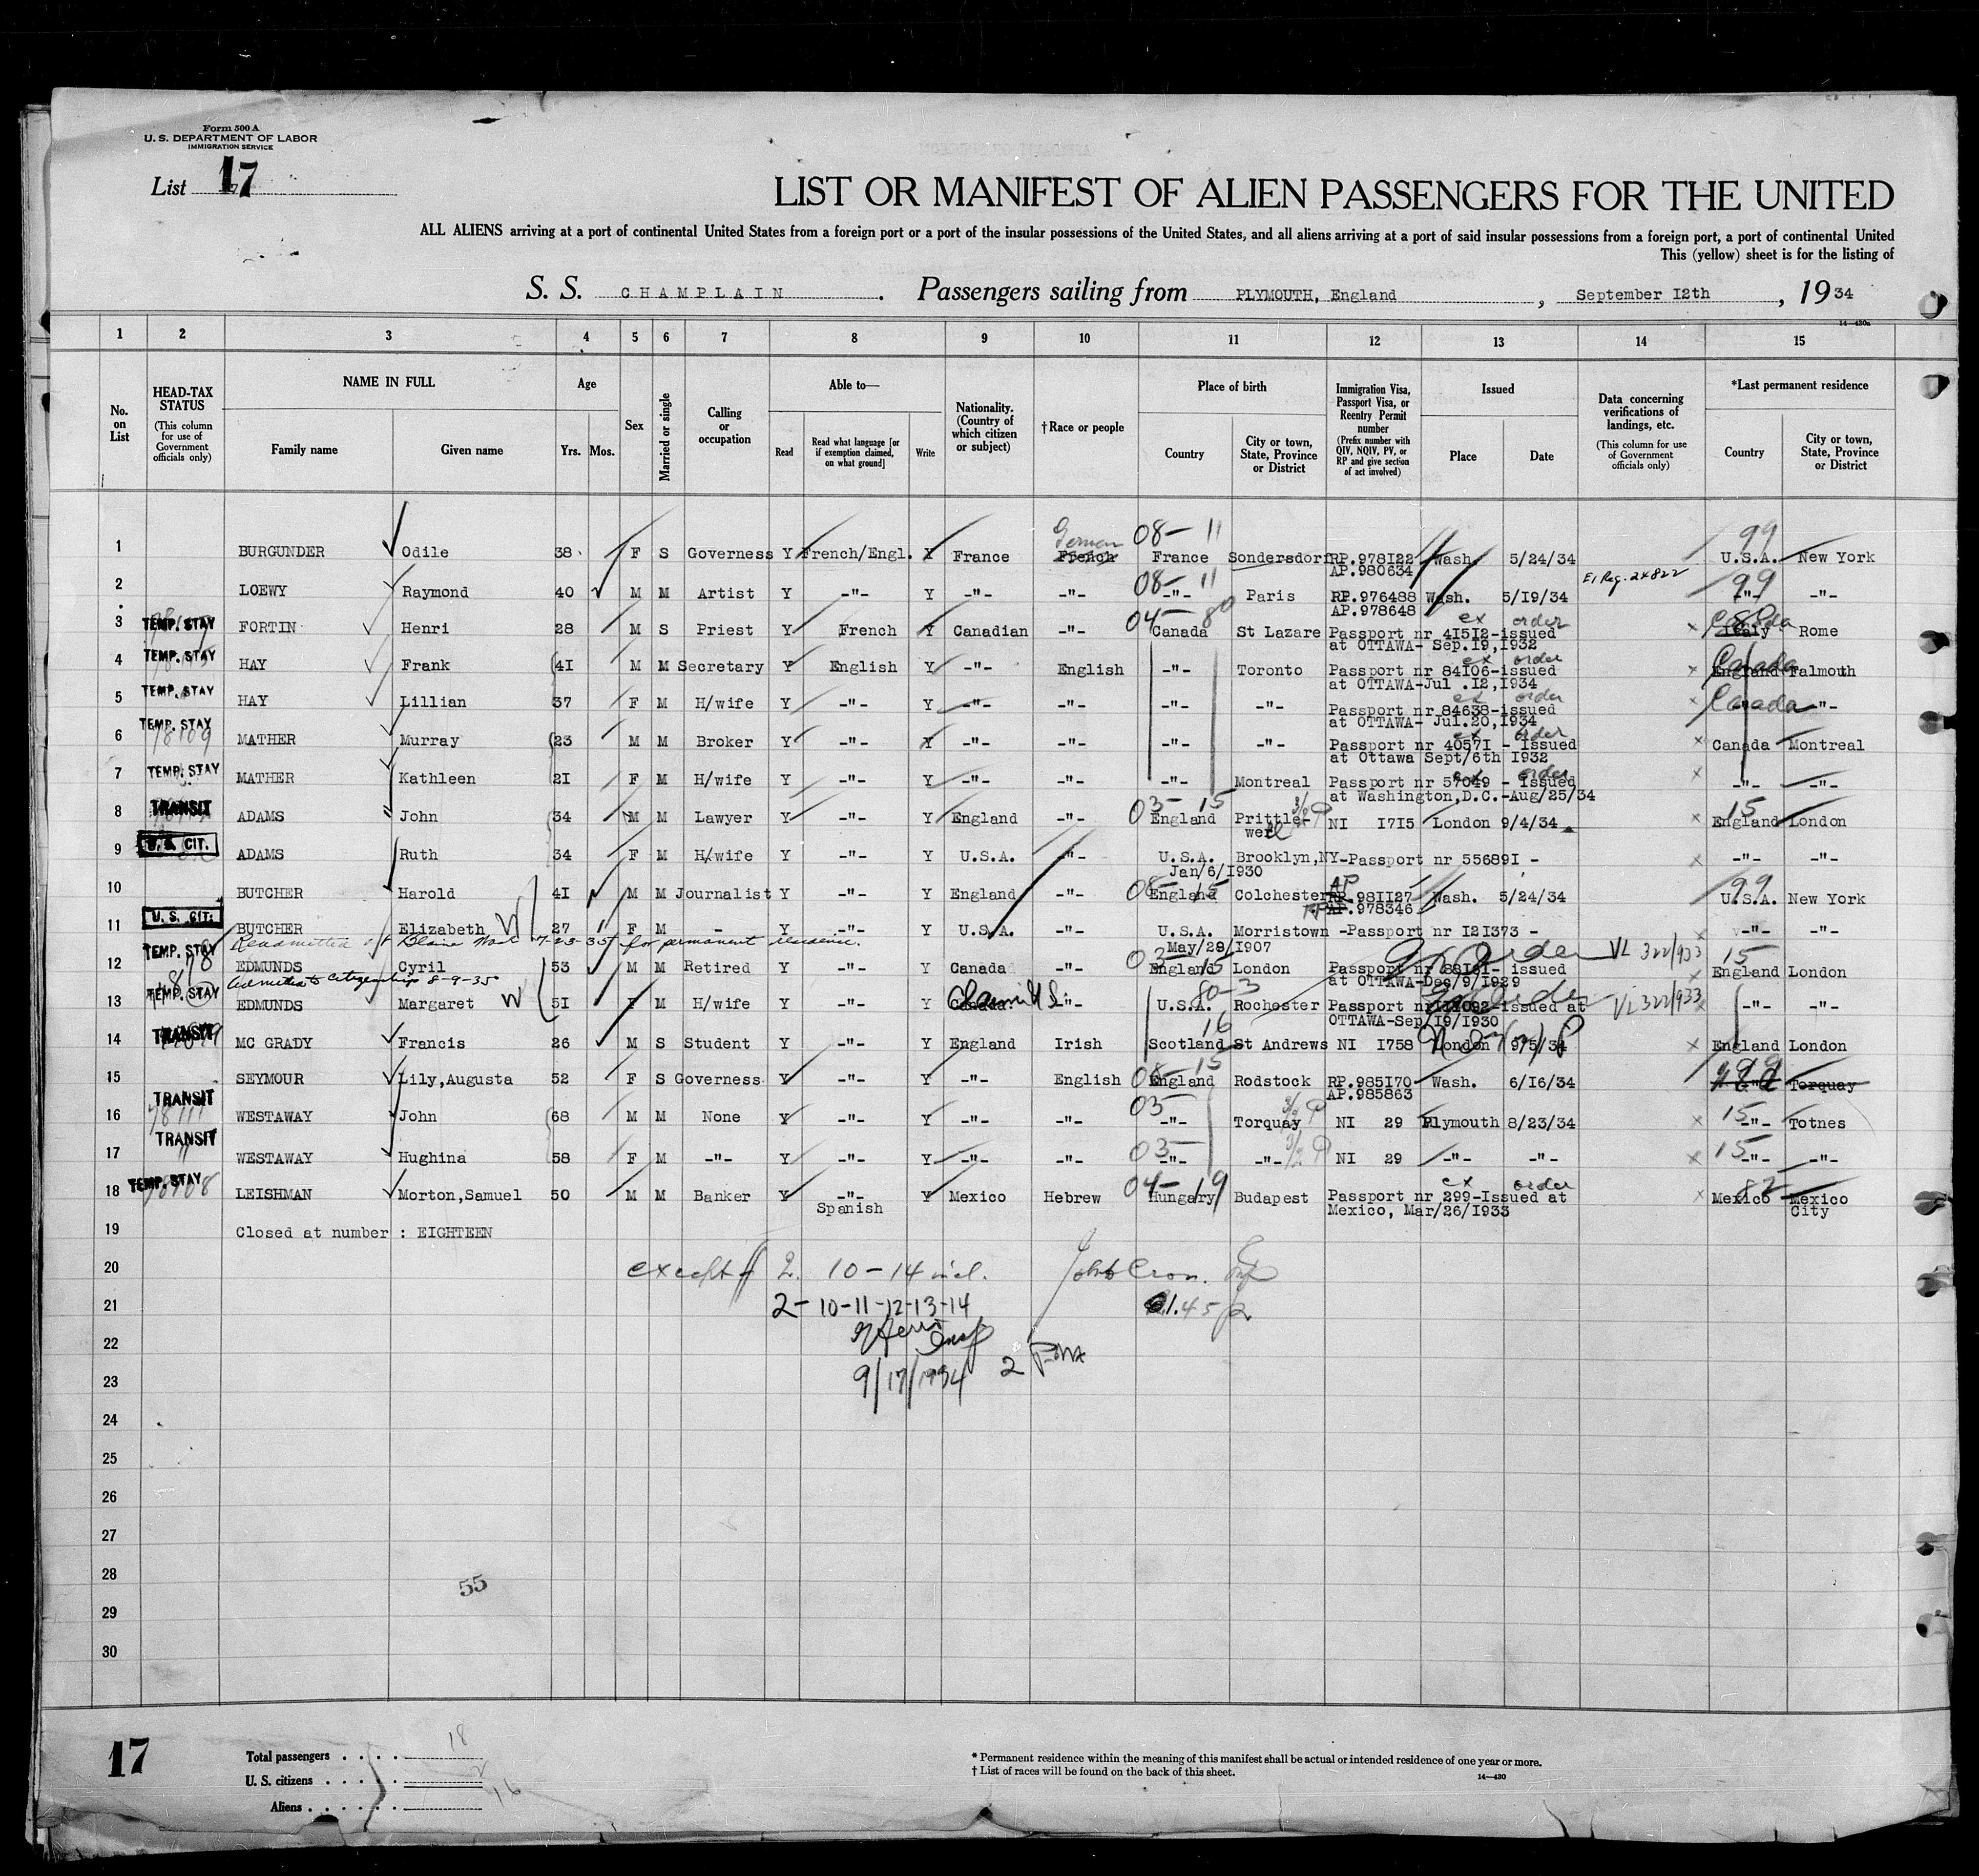 Form 500 A
U. S. DEPARTMENT OF LABOR
IMMIGRATION SERVICE
List 17
LIST OR MANIFEST OF ALIEN PASSENGERS FOR THE UNITED
ALL ALIENS arriving at a port of continental United States from a foreign port or a port of the insular possessions of the United States, and all aliens arriving at a port of said insular possessions from a foreign port, a port of continental United
This (yellow) sheet is for the listing of
S. S. CHAMPLAIN . Passengers sailing from PLYMOUTH, England , September I2th , 19 34
14—430a
1 2 3 4 5 6 7 8 9 10 11 12 13 14 15
No. on List
HEAD-TAX STATUS (This column for use of Government officials only)
NAME IN FULL Family name Given name
Age Yrs. Mos.
Sex
Married or single
Calling or occupation
Able to— Read Read what language [or if exemption claimed, on what ground] Write
Nationality. (Country of which citizen or subject)
†Race or people
Place of birth Country City or town, State, Province or District
Immigration Visa, Passport Visa, or Reentry Permit number (Prefix number with QIV, NQIV, PV, or RP and give section of act involved)
Issued Place Date
Data concerning verifications of landings, etc. (This column for use of Government officials only)
*Last permanent residence Country City or town, State, Province or District
German 08- 11 99
1 BURGUNDER Odile 38 F S Governess Y French/Engl. Y France French France Sondersdorf RP.978I22 Wash. 5/24/34 U.S.A. New York
AP.980634
08- 11 99
2 LOEWY Raymond 40 M M Artist Y -"- Y -"- -"- -"- Paris RP.976488 Wash. 5/I9/34 -"- -"-
El Reg. 24822
AP.978648
04- 80 ex order Canada
3 TEMP. STAY FORTIN Henri 28 M S Priest Y French Y Canadian -"- Canada St Lazare Passport nr 4I5I2-issued Italy Rome
at OTTAWA- Sep.I9,I932
ex order Canada
4 TEMP. STAY HAY Frank 4I M M Secretary Y English Y -"- English -"- Toronto Passport nr 84I06-issued England Falmouth
at OTTAWA-Jul .I2,I934
ex order Canada
5 TEMP. STAY HAY Lillian 37 F M H/wife Y -"- Y -"- -"- -"- -"- Passport nr 84638-issued -"- -"-
at OTTAWA- Jul.20,I934
ex order
6 TEMP. STAY 78109 MATHER Murray 23 M M Broker Y -"- Y -"- -"- -"- -"- Passport nr 4057I - Issued Canada Montreal
at Ottawa Sept/6th I932
ex order
7 TEMP. STAY MATHER Kathleen 2I F M H/wife Y -"- Y -"- -"- -"- Montreal Passport nr 57049 - Issued -"- -"-
at Washington,D.C.-Aug/25/34
03- 15 15
8 TRANSIT ADAMS John 34 M M Lawyer Y -"- Y England -"- England Prittle- NI I7I5 London 9/4/34 England London
well
9 U.S. CIT. ADAMS Ruth 34 F M H/wife Y -"- Y U.S.A. -"- U.S.A. Brooklyn,NY-Passport nr 55689I - -"- -"-
Jan/6/I930
08- 15 AP 99
10 BUTCHER Harold 4I M M Journalist Y -"- Y England -"- England Colchester RP.98II27 Wash. 5/24/34 U.S.A. New York
RP AP.978346
11 U. S. CIT. BUTCHER Elizabeth W 27 F M - Y -"- Y U.S.A. -"- U.S.A. Morristown -Passport nr I2I373 - -"- -"-
May/28/I907
Readmitted at Blaine Wash 7-23-35 for permanent residence.
03- 15 ex order VL 322/933 15
12 TEMP. STAY EDMUNDS Cyril 53 M M Retired Y -"- Y Canada -"- England London Passport nr 88I8I- issued England London
at OTTAWA-Dec/9/I929
Admitted to Citizenship 8-9-35
80-3 ex order VL 322/933
13 TEMP. STAY EDMUNDS Margaret W 5I F M H/wife Y -"- Y Canada -"- U.S.A. Rochester Passport nr III092-Issued at -"- -"-
OTTAWA-Sep/I9/I930
16
14 TRANSIT MC GRADY Francis 26 M S Student Y -"- Y England Irish Scotland St Andrews NI I758 London 9/5/34 England London
08- 15 99
15 SEYMOUR Lily,Augusta 52 F S Governess Y -"- Y -"- English England Rodstock RP.985I70 Wash. 6/I6/34 -"- Torquay
AP.985863
03 15
16 TRANSIT 78111 WESTAWAY John 68 M M None Y -"- Y -"- -"- -"- Torquay NI 29 Plymouth 8/23/34 -"- Totnes
03 15
17 TRANSIT WESTAWAY Hughina 58 F M -"- Y -"- Y -"- -"- -"- -"- NI 29 -"- -"- -"- -"-
04- 19 ex order 82
18 TEMP. STAY 78108 LEISHMAN Morton,Samuel 50 M M Banker Y -"- Y Mexico Hebrew Hungary Budapest Passport nr 299-Issued at Mexico Mexico
Spanish Mexico, Mar/26/I933 City
19 Closed at number : EIGHTEEN
20 except # 2. 10-14 incl. John Cron.
21 2-10-11-12-13-14 45
22 Insp
23 9/17/1934 2
24
25
26
27
28 55
29
30
17
Total passengers . . . . 18
U. S. citizens . . . . 2
Aliens . . . . . . 16
* Permanent residence within the meaning of this manifest shall be actual or intended residence of one year or more.
† List of races will be found on the back of this sheet.
14—430